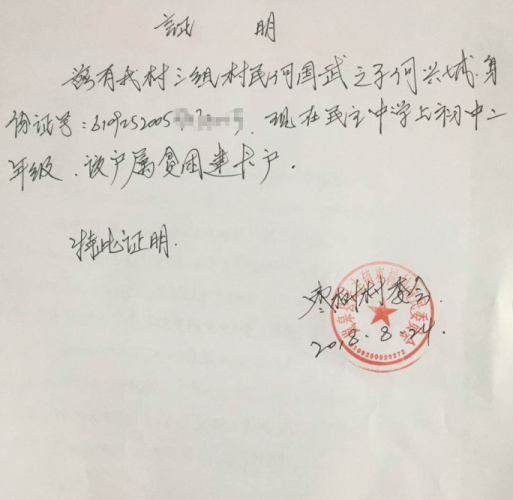 证 明
兹有我村三组村民何国武之子何兴城.身
份证号:6109252005 现在民主中学上初中二
年级.该户属贫困建卡户.
特此证明.
枣树村委会.
2018.8.24